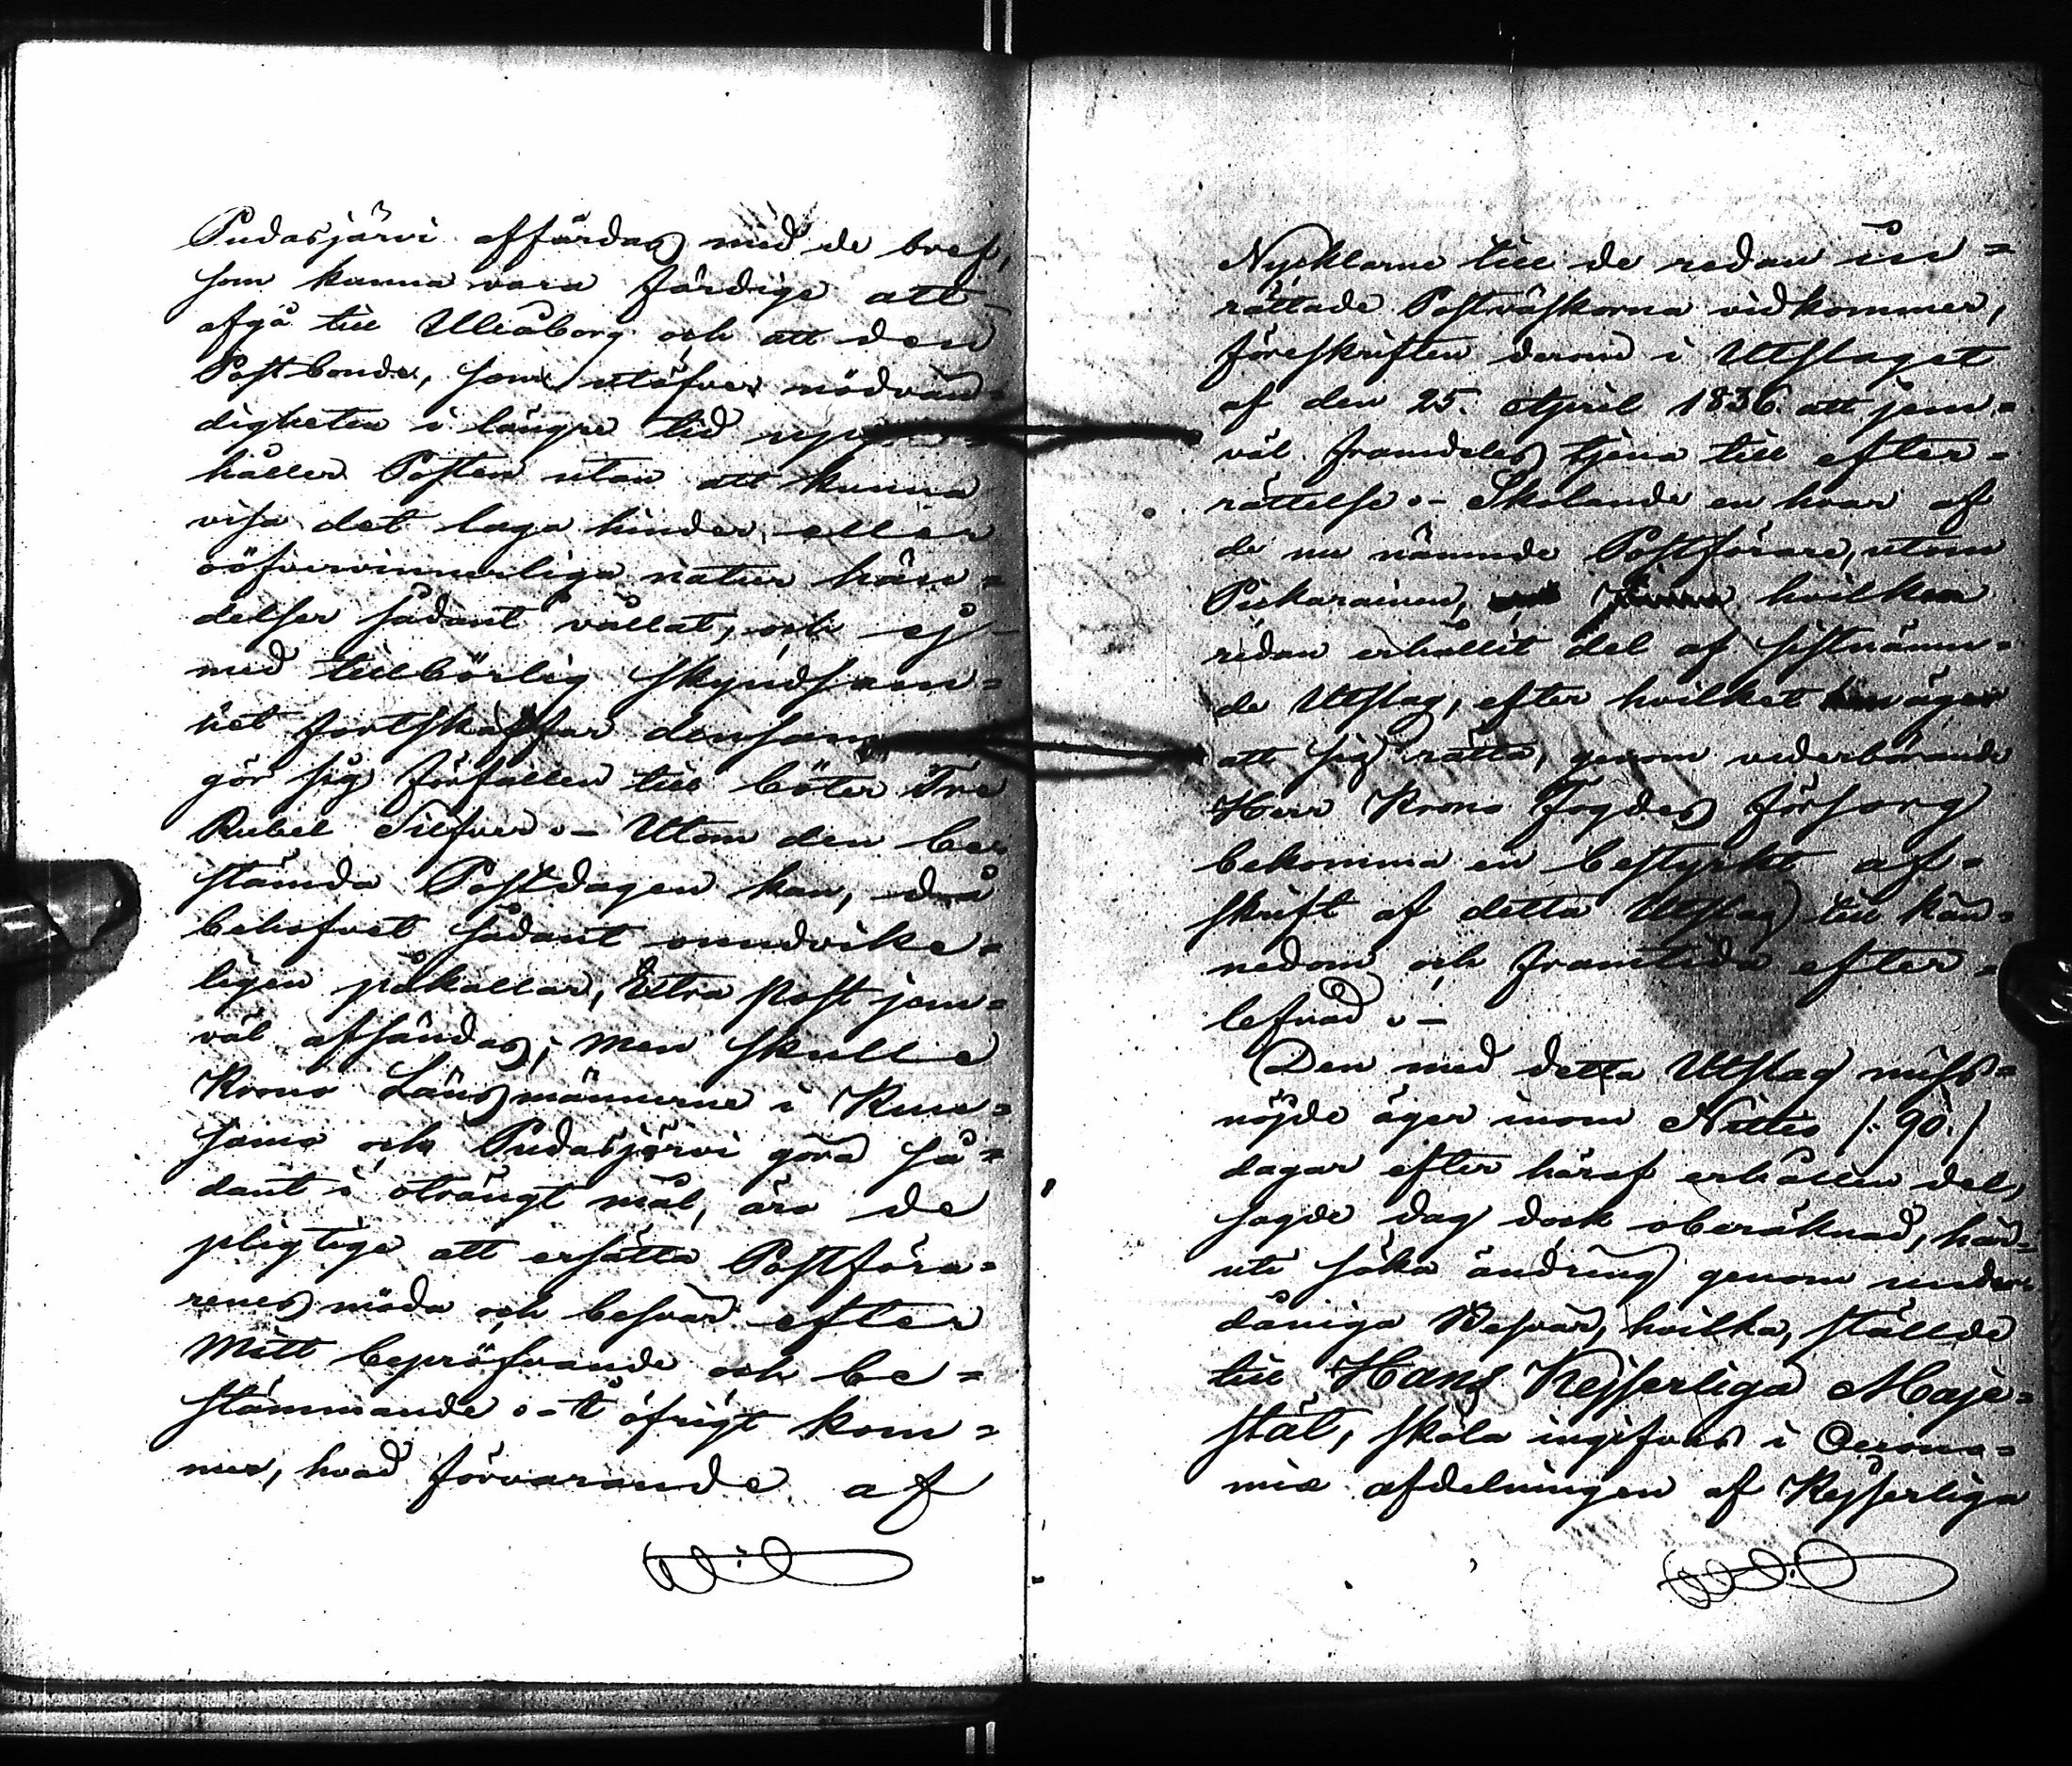 Pudasjärvi affärdas med de bref,
som kunna vara färdige att
afgå till Uleåborg och att den
Postbonde, som utöfver nödvän-
digheten i längre tid uppe-
håller Posten utan att kunna
visa det laga hinder eller
oöfvervinnerliga natur hän-
delser sådant vållat, och ej
med tillbörlig skyndsam-
het fortskaffar densam
gör sig förfallen till böter Tre
Rubel Silfver.- Utom den be-
stämda Postdagen kan, då
behofvet sådant oundvike-
ligen påkallar, Extra post jem-
väl afsändas; men skulle
Krono Länsmännerne i Kuu-
samo och Pudasjärvi göra så-
dant i oträngt mål, äro de
pligtige att ersätta Postföra-
renes möda och besvär efter
Mitt bepröfvande och be-
stämmande.- I öfrigt kom-
mer, hvad förvarande af
Nycklarne till de redan in-
rättade Postväskorna vidkommer,
föreskriften derom i Utslaget
af den 25. April 1836. att jem-
väl framdeles tjena till efter-
rättelse.- Skolande en hvar af
de nu nämnde Postförare, utom
Piekarainen, hvilken
redan erhållit del af sistnämn-
de Utslag, efter hvilket han äger
att sig rätta, genom vederbörande
Herr Krono Fogdes försorg
bekomma en bestyrkt af-
skrift af detta Utslag till kän-
nedom och framtida efter-
lefnad.-
Den med detta Utslag miss-
nöjde äger inom Nittio /: 90:/
dagar efter häraf erhållen del,
sagde dag dock oberäknad, här-
ute söka ändring genom under-
dåniga Besvär, hvilka, ställde
till Hans Kejserliga Maje-
stät, skola ingifvas i Oecono-
mie afdelningen af Kejserliga